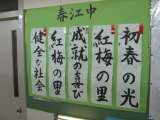 春江中
初春の光
紅梅の里
成就の喜び
紅梅の里
健全な社会